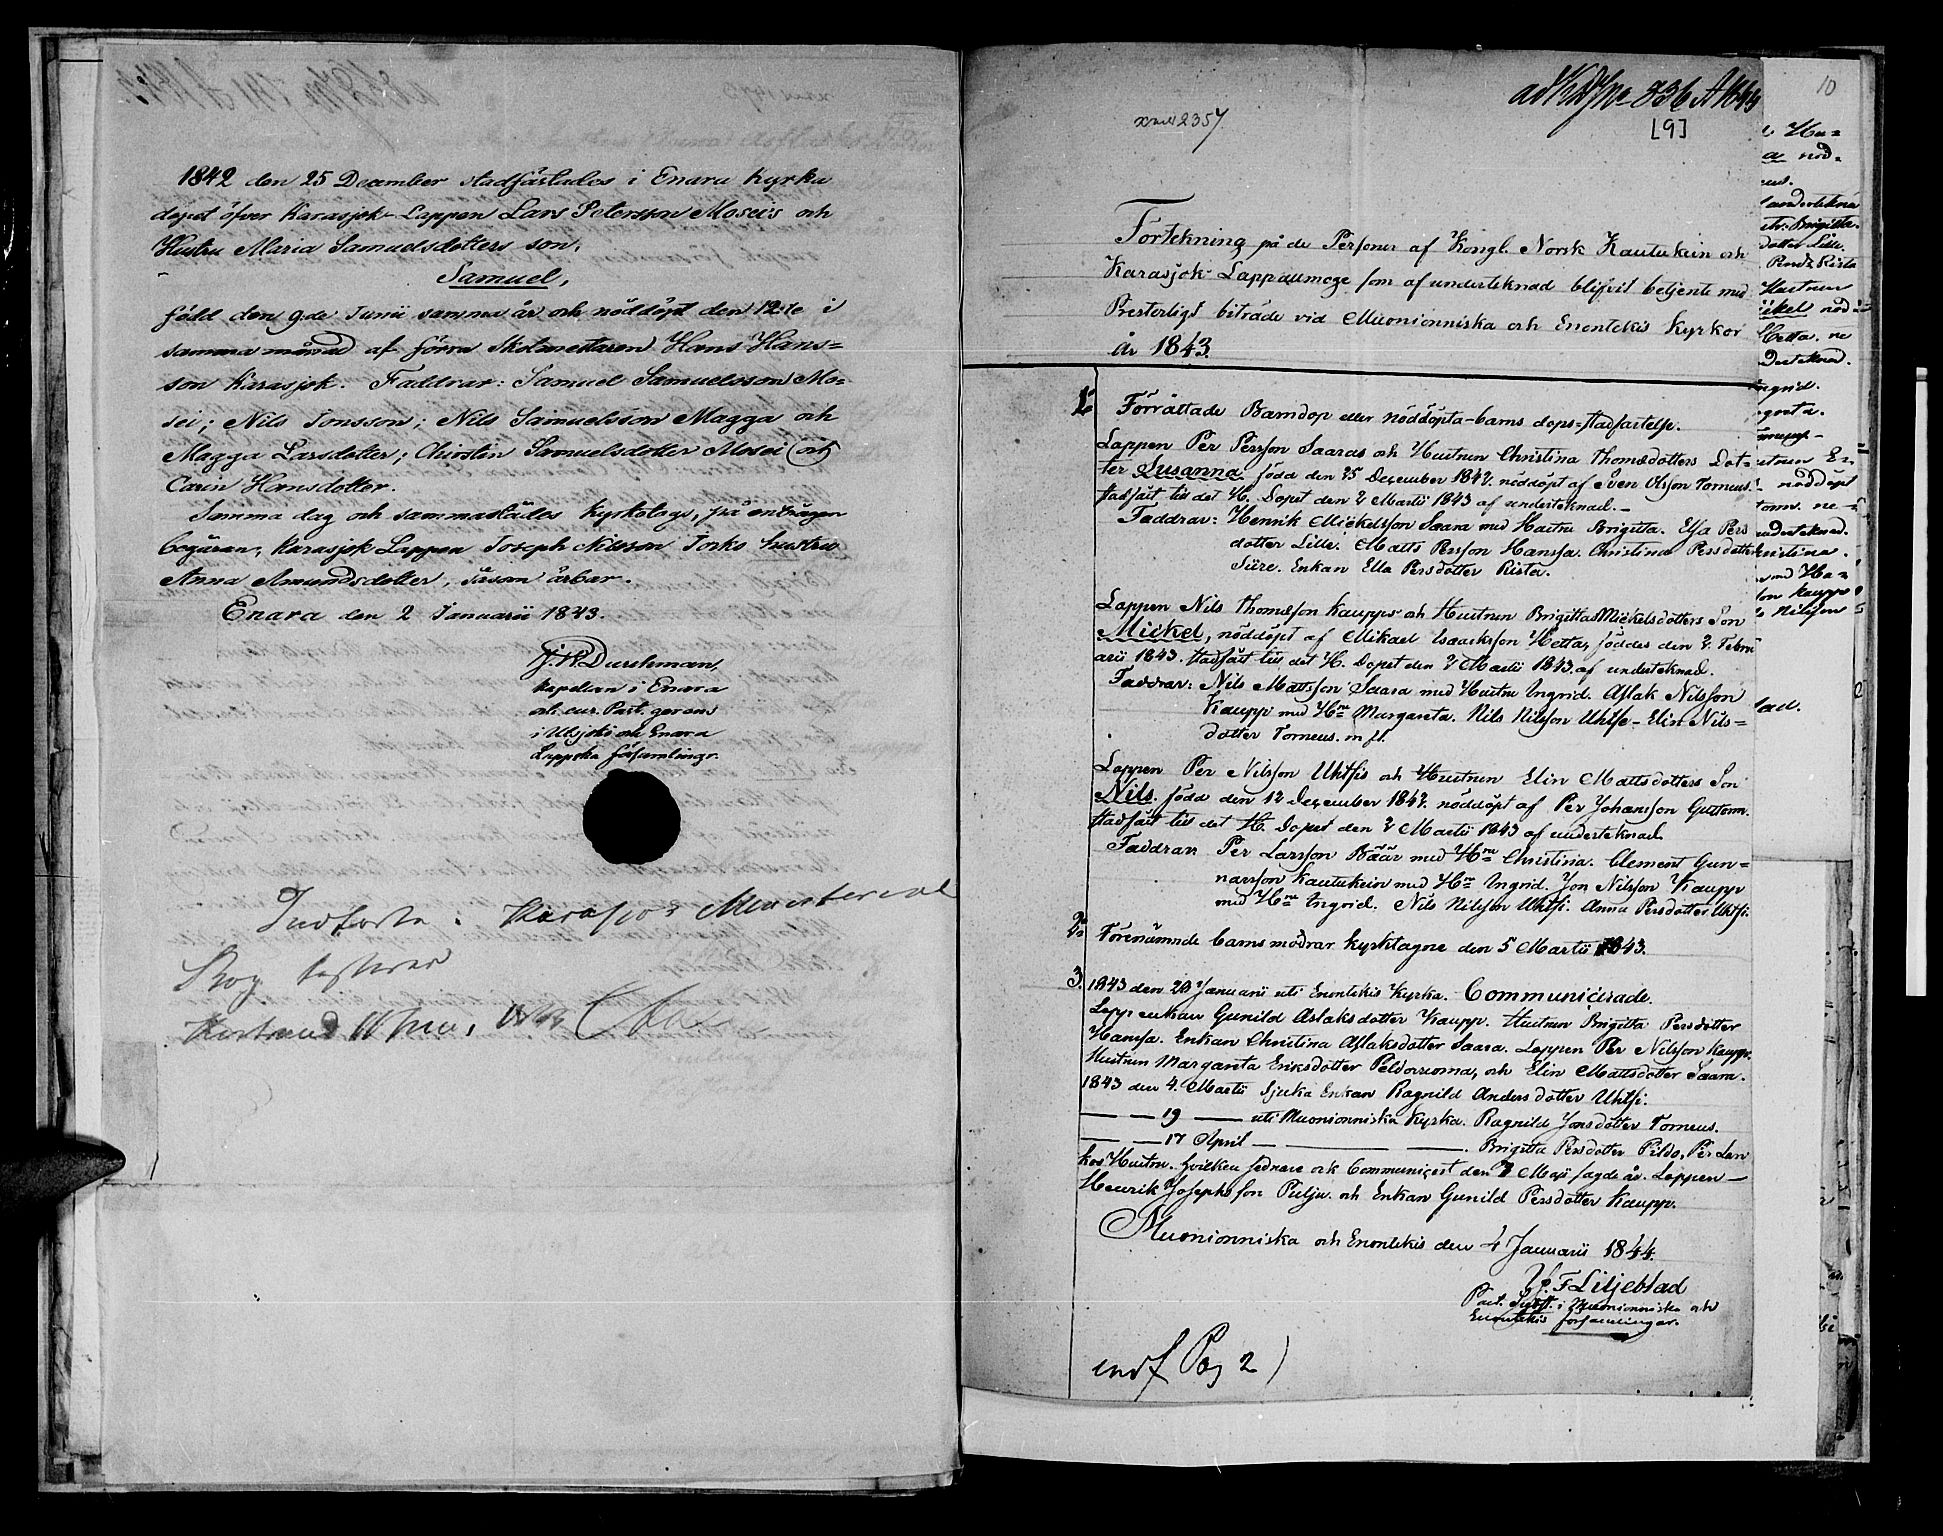 1842 den 25 December stadfästades i Enara Kyrka
dopet öfver Karasjok-Lappen Lars Petersson Moseis och
Hustru Maria Samuelsdotters son,
Samuel,
född den 9:de Junii samma år och nöddöpt den 12:te i
samma månad af förra Skolmestaren Hans Hans=
son Karasjok. Faddrar: Samuel Samuelsson Mo=
sei; Nils Jonsson; Nils Samuelsson Magga och
Magga Larsdotter; Christin Samuelsdotter Mosei och
Carin Hansdotter.
Samma dag och sammastädes kyrkotogs, på enträgen
begäran, Karasjok Lappen Joseph Nilsson Jorks hustru
Anna Amundsdotter, såsom ärbar.
Enara den 2 Januarii 1843.
J. W. Durchman,
Kapellan i Enara
och cur. Past. gerens
i Utsjoki och Enara
Lappska församlingr.
Indförte i Karasjok Ministerial
Bog
10
ad No 836 A 1844
[9]
2357
Förtekning på de Personer af Kongl. Norsk Kautukein och
Karasjok Lappallmoge som af undertecknad blifvit betjente med
Presterligt biträde vid Muonionniska och Enontekis Kyrkor
år 1843.
1o Förrättade Barndop eller nöddöpta-barns dops-stadfästelse.
Lappen Per Persson Saaras och Hustrun Christina Thomædotters Dot-
ter Susanna, född den 25 December 1842. nöddöpt af Sven Olsson Torneus.
stadfäst till det H. Dopet den 2 Martii 1843 af underteknad.-
Faddrar: Henrik Mickelsson Saara med Hustru Brigitta. Elsa Pers
dotter Lille. Matts Persson Hanssa. Christina Persdotter
Siire. Enkan Ella Persdotter Rista.
Lappen Nils Thomæson Kaupps och Hustrun Brigitta Mickelsdotters Son
Mickel, nöddöpt af Mikael Isaacksson Hetta, föddes den 2. Febru
arii 1843. stadfäst till det H. Dopet den 2 Martii 1843. af underteknad.
Faddrar: Nils Mattsson Saara med Hustru Ingrid. Aslak Nilsson
Kaupp med H:ru Margareta. Nils Nilsson Uhtsi- Elin Nils=
dotter Torneus. m fl.
Lappen Per Nilsson Uhtsis och Hustrun Elin Mattsdotters Son
Nils. född den 12 December 1842. nöddöpt af Per Johansson Guttorm.
stadfäst till det H. Dopet den 2 Martii 1843 af underteknad.
Faddrar: Per Larsson Bäär med H:ru Christina. Clement Gun=
narsson Kautukein med H:ru Ingrid. Jon Nilsson Kaupp
med H:ru Ingrid. Nils Nilsson Uhtsi. Anna Persdotter Uhtsi.
2o Förenämnde barnsmödrar kyrktagne den 5 Martii 1843.
3. 1843 den 29 Januarii uti Enontekis Kyrka. Communicerade.
Lapp enkan Gunild Aslaksdotter Kaupp. Hustrun Brigitta Persdotter
Hansa. Enkan Christina Aslaksdotter Saara. Lappen Per Nilsson Kaupp.
Hustrun Margareta Eriksdotter Peldovuoma, och Elin Mattsdotter Saara.
1843 den 4. Martii Sjuka Enkan Ragnild Andersdotter Uhtsi.
— — 19 — uti Muonionniska Kyrka. Ragnild Jonsdotter Torneus.
— — 17 April — — — . Brigitta Persdotter Pildo, Per Lan
kos Hustru. hvilken sednare ock Communicert den 7 Maji sagde år. Lappen —
Henrik Josephsson Pulju. och Enkan Gunild Persdotter Kaupp.
Muonionniska och Enontekis den 4 Januarii 1844.
F Liljeblad
Past. Subst. i Muonionniska och
Enontekis församlingar.
indf Pag 2)